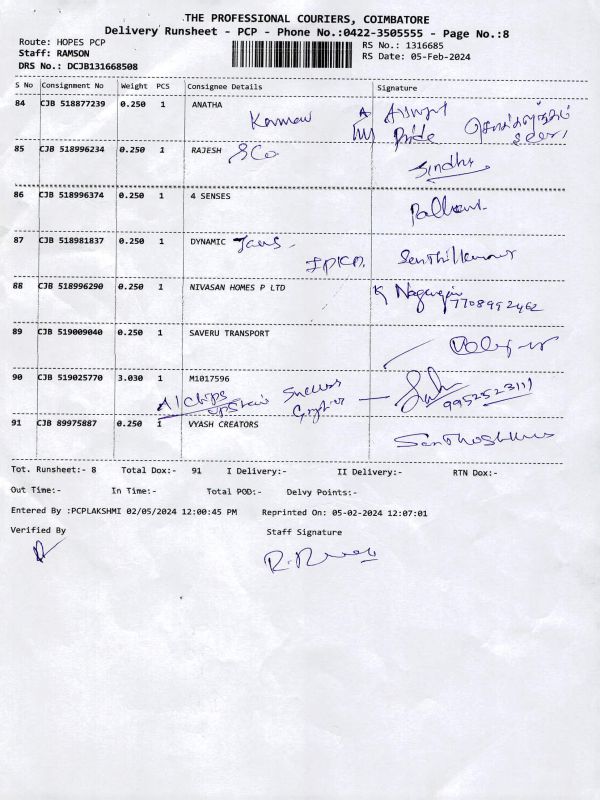 THE PROFESSIONAL COURIERS, COIMBATORE
Delivery Runsheet - PCP - Phone No.:0422-3505555 - Page No.:8
Route: HOPES PCP
Staff: RAMSON
DRS No.: DCJB131668508
RS No.: 1316685
RS Date: 05-Feb-2024
S No Consignment No Weight PCS Consignee Details Signature
84 CJB 518877239 0.250 1 ANATHA
Pride
85 CJB 518996234 0.250 1 RAJESH Sindhu
86 CJB 518996374 0.250 1 4 SENSES
87 CJB 518981837 0.250 1 DYNAMIC Senthilkumar
88 CJB 518996290 0.250 1 NIVASAN HOMES P LTD K Nagarajan
7708992462
89 CJB 519009040 0.250 1 SAVERU TRANSPORT
90 CJB 519025770 3.030 1 M1017596
A1 chips upstair Success
9952523111
91 CJB 89975887 0.250 1 VYASH CREATORS
Tot. Runsheet:- 8 Total Dox:- 91 I Delivery:- II Delivery:- RTN Dox:-
Out Time:- In Time:- Total POD:- Delvy Points:-
Entered By :PCPLAKSHMI 02/05/2024 12:00:45 PM Reprinted On: 05-02-2024 12:07:01
Verified By Staff Signature